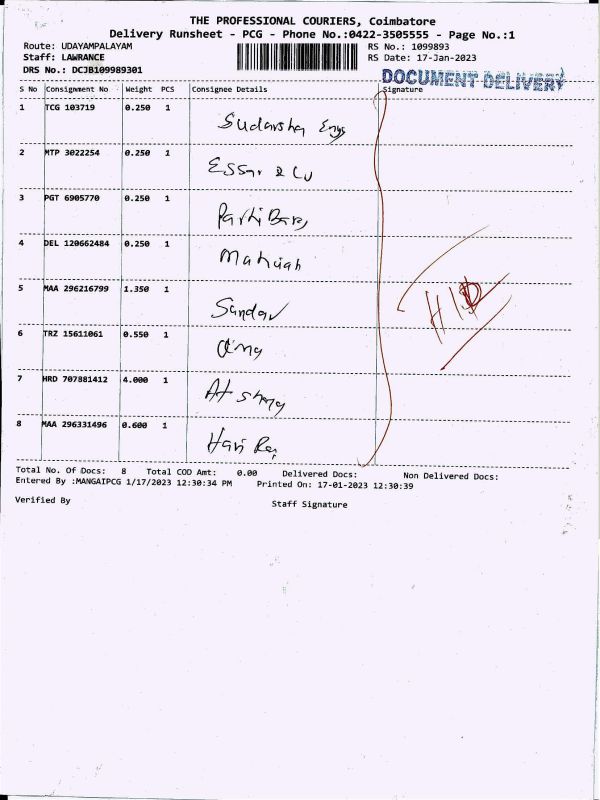 THE PROFESSIONAL COURIERS, Coimbatore
Delivery Runsheet - PCG - Phone No.:0422-3505555 - Page No.:1
Route: UDAYAMPALAYAM RS No.: 1099893
Staff: LAWRANCE RS Date: 17-Jan-2023
DRS No.: DCJB109989301
DOCUMENT DELIVERY
S No Consignment No Weight PCS Consignee Details Signature
1 TCG 103719 0.250 1
Sudarshan Engs
2 MTP 3022254 0.250 1
Essar & Co
3 PGT 6905770 0.250 1
4 DEL 120662484 0.250 1
5 MAA 296216799 1.350 1
6 TRZ 15611061 0.550 1
7 HRD 707881412 4.000 1
8 MAA 296331496 0.600 1
Total No. Of Docs: 8 Total COD Amt: 0.00 Delivered Docs: Non Delivered Docs:
Entered By :MANGAIPCG 1/17/2023 12:30:34 PM Printed On: 17-01-2023 12:30:39
Verified By Staff Signature